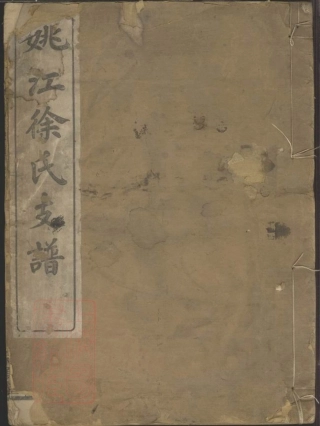 姚江徐氏支譜